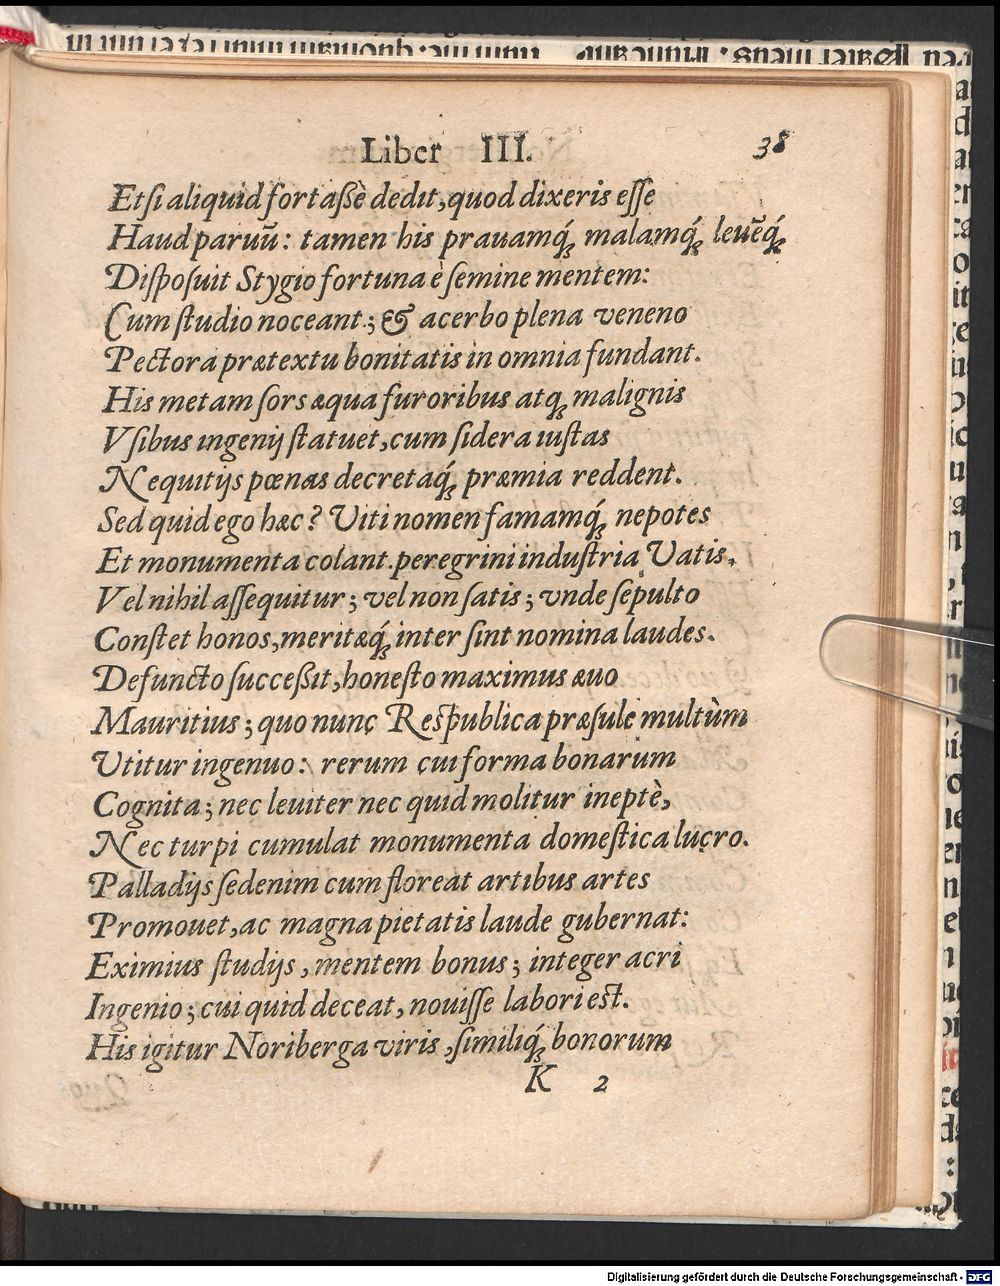 Liber III. 38
Etſi aliquid fortaßè dedit, quod dixeris eſſe
Haud paruū: tamen his prauamq́; malamq́; leuēq́;
Diſpoſuit Stygio fortuna è ſemine mentem:
Cum ſtudio noceant; & acerbo plena veneno
Pectora prætextu bonitatis in omnia fundant.
His metam ſors æqua furoribus atq; malignis
Vſibus ingenij ſtatuet, cum ſidera iuſtas
Nequitijs pœnas decretaq́; præmia reddent.
Sed quid ego hæc? Viti nomen famamq́; nepotes
Et monumenta colant. peregrini induſtria Vatis,
Vel nihil aſſequitur; vel non ſatis; vnde ſepulto
Conſtet honos, meritæq́; inter ſint nomina laudes.
Defuncto ſucceßit, honeſto maximus æuo
Mauritius; quo nunc Reſpublica præſule multùm
Vtitur ingenuo: rerum cui forma bonarum
Cognita; nec leuiter nec quid molitur ineptè,
Nec turpi cumulat monumenta domeſtica lucro.
Palladijs ſed enim cum floreat artibus artes
Promouet, ac magna pietatis laude gubernat:
Eximius ſtudijs, mentem bonus; integer acri
Ingenio; cui quid deceat, nouiſſe labori eſt.
His igitur Noriberga viris, ſimiliq́; bonorum
K 2
Digitalisierung gefördert durch die Deutsche Forschungsgemeinschaft - DFG